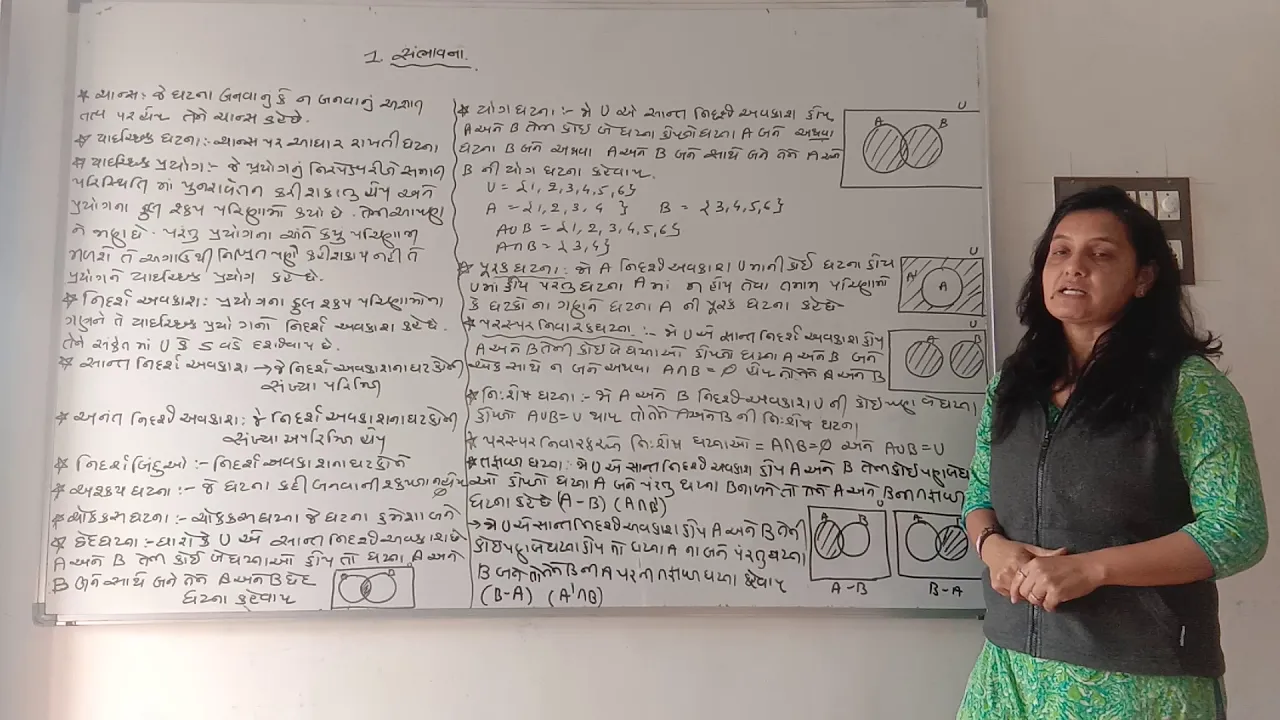 1. સંભાવના.
* ચાન્સ: જે ઘટના બનવાનું કે ન બનવાનું અજ્ઞાત
તત્વ પર હોય તેને ચાન્સ કહે છે.
* યાદચ્છિક ઘટના: ચાન્સ પર આધાર રાખતી ઘટના
* યાદચ્છિક પ્રયોગ:- જે પ્રયોગનું નિરપેક્ષ રીતે સમાન
પરિસ્થિતિ માં પુનરાવર્તન કરી શકાતુ હોય અને
પ્રયોગના કુલ શક્ય પરિણામો કયો છે. તેની આપણ
ને જાણ છે. પરંતુ પ્રયોગના અંતે કયુ પરિણામ
મળશે તે અગાઉથી નિશ્ચિત પણે કહી શકાય નહી તે
પ્રયોગને યાદચ્છિક પ્રયોગ કહે છે.
* નિદર્શ અવકાશ: પ્રયોગના કુલ શક્ય પરિણામોના
ગણને તે યાદચ્છિક પ્રયોગનો નિદર્શ અવકાશ કહે છે.
તેને સંકેત માં U કે S વડે દર્શાવાય છે.
* સાન્ત નિદર્શ અવકાશ → જે નિદર્શ અવકાશના ઘટકોની
સંખ્યા પરિમિત
* અનંત નિદર્શ અવકાશ: જે નિદર્શ અવકાશના ઘટકોની
સંખ્યા અપરિમિત હોય
* નિદર્શ બિંદુઓ :- નિદર્શ અવકાશના ઘટકોને
* અશક્ય ઘટના :- જે ઘટના કદી બનવાની શક્યતા ન હોય
∅
* ચોક્કસ ઘટના :- ચોક્કસ ઘટના જે ઘટના હંમેશા બને
* છેદ ઘટના :- ધારો કે U એ સાન્ત નિદર્શ અવકાશ છે
A અને B તેની કોઈ બે ઘટનાઓ હોય તો ઘટના A અને
B બંને સાથે બને તેને A અને B છેદ
ઘટના કહેવાય
B
* યોગ ઘટના :- જો U એ સાન્ત નિદર્શ અવકાશ હોય
A અને B તેની કોઈ બે ઘટના હોય તો ઘટના A બને અથવા
ઘટના B બને અથવા A અને B બંને સાથે બને તેને A અને
B ની યોગ ઘટના કહેવાય.
U = {1, 2, 3, 4, 5, 6}
A = {1, 2, 3, 4 } B = {3, 4, 5, 6}
A∪B = {1, 2, 3, 4, 5, 6}
A∩B = {3, 4}
U
A B
* પૂરક ઘટના: જો A નિદર્શ અવકાશ U માની કોઈ ઘટના હોય
U માં હોય પરંતુ ઘટના A માં ન હોય તેવા તમામ પરિણામો
કે ઘટકો ના ગણને ઘટના A ની પૂરક ઘટના કહે છે
U
A' A
* પરસ્પર નિવારક ઘટના :- જો U એ સાન્ત નિદર્શ અવકાશ હોય
A અને B તેની કોઈ બે ઘટનાઓ હોય તો ઘટના A અને B બંને
એક સાથે ન બને અથવા A∩B = ∅ હોય તો તેને A અને B
U
A B
* નિ:શેષ ઘટના :- જો A અને B નિદર્શ અવકાશ U ની કોઈ પણ બે ઘટના
હોય તો A∪B = U થાય તો તેને A અને B ની નિ:શેષ ઘટના
* પરસ્પર નિવારક અને નિ:શેષ ઘટનાઓ = A∩B = ∅ અને A∪B = U
* તફાવત ઘટના: જો U એ સાન્ત નિદર્શ અવકાશ હોય A અને B તેની કોઈ પણ બે ઘટના
ઓ હોય તો ઘટના A બને પરંતુ ઘટના B ના બને તો તેને A અને B ના તફાવત
ઘટના કહે છે (A-B) (A∩B')
→ જો U એ સાન્ત નિદર્શ અવકાશ હોય A અને B તેની
કોઈ પણ બે ઘટના હોય તો ઘટના A ના બને પરંતુ ઘટના
B બને તો તેને B ના A પરની તફાવત ઘટના કહેવાય
(B-A) (A'∩B)
U
A B
A-B
A B
B-A